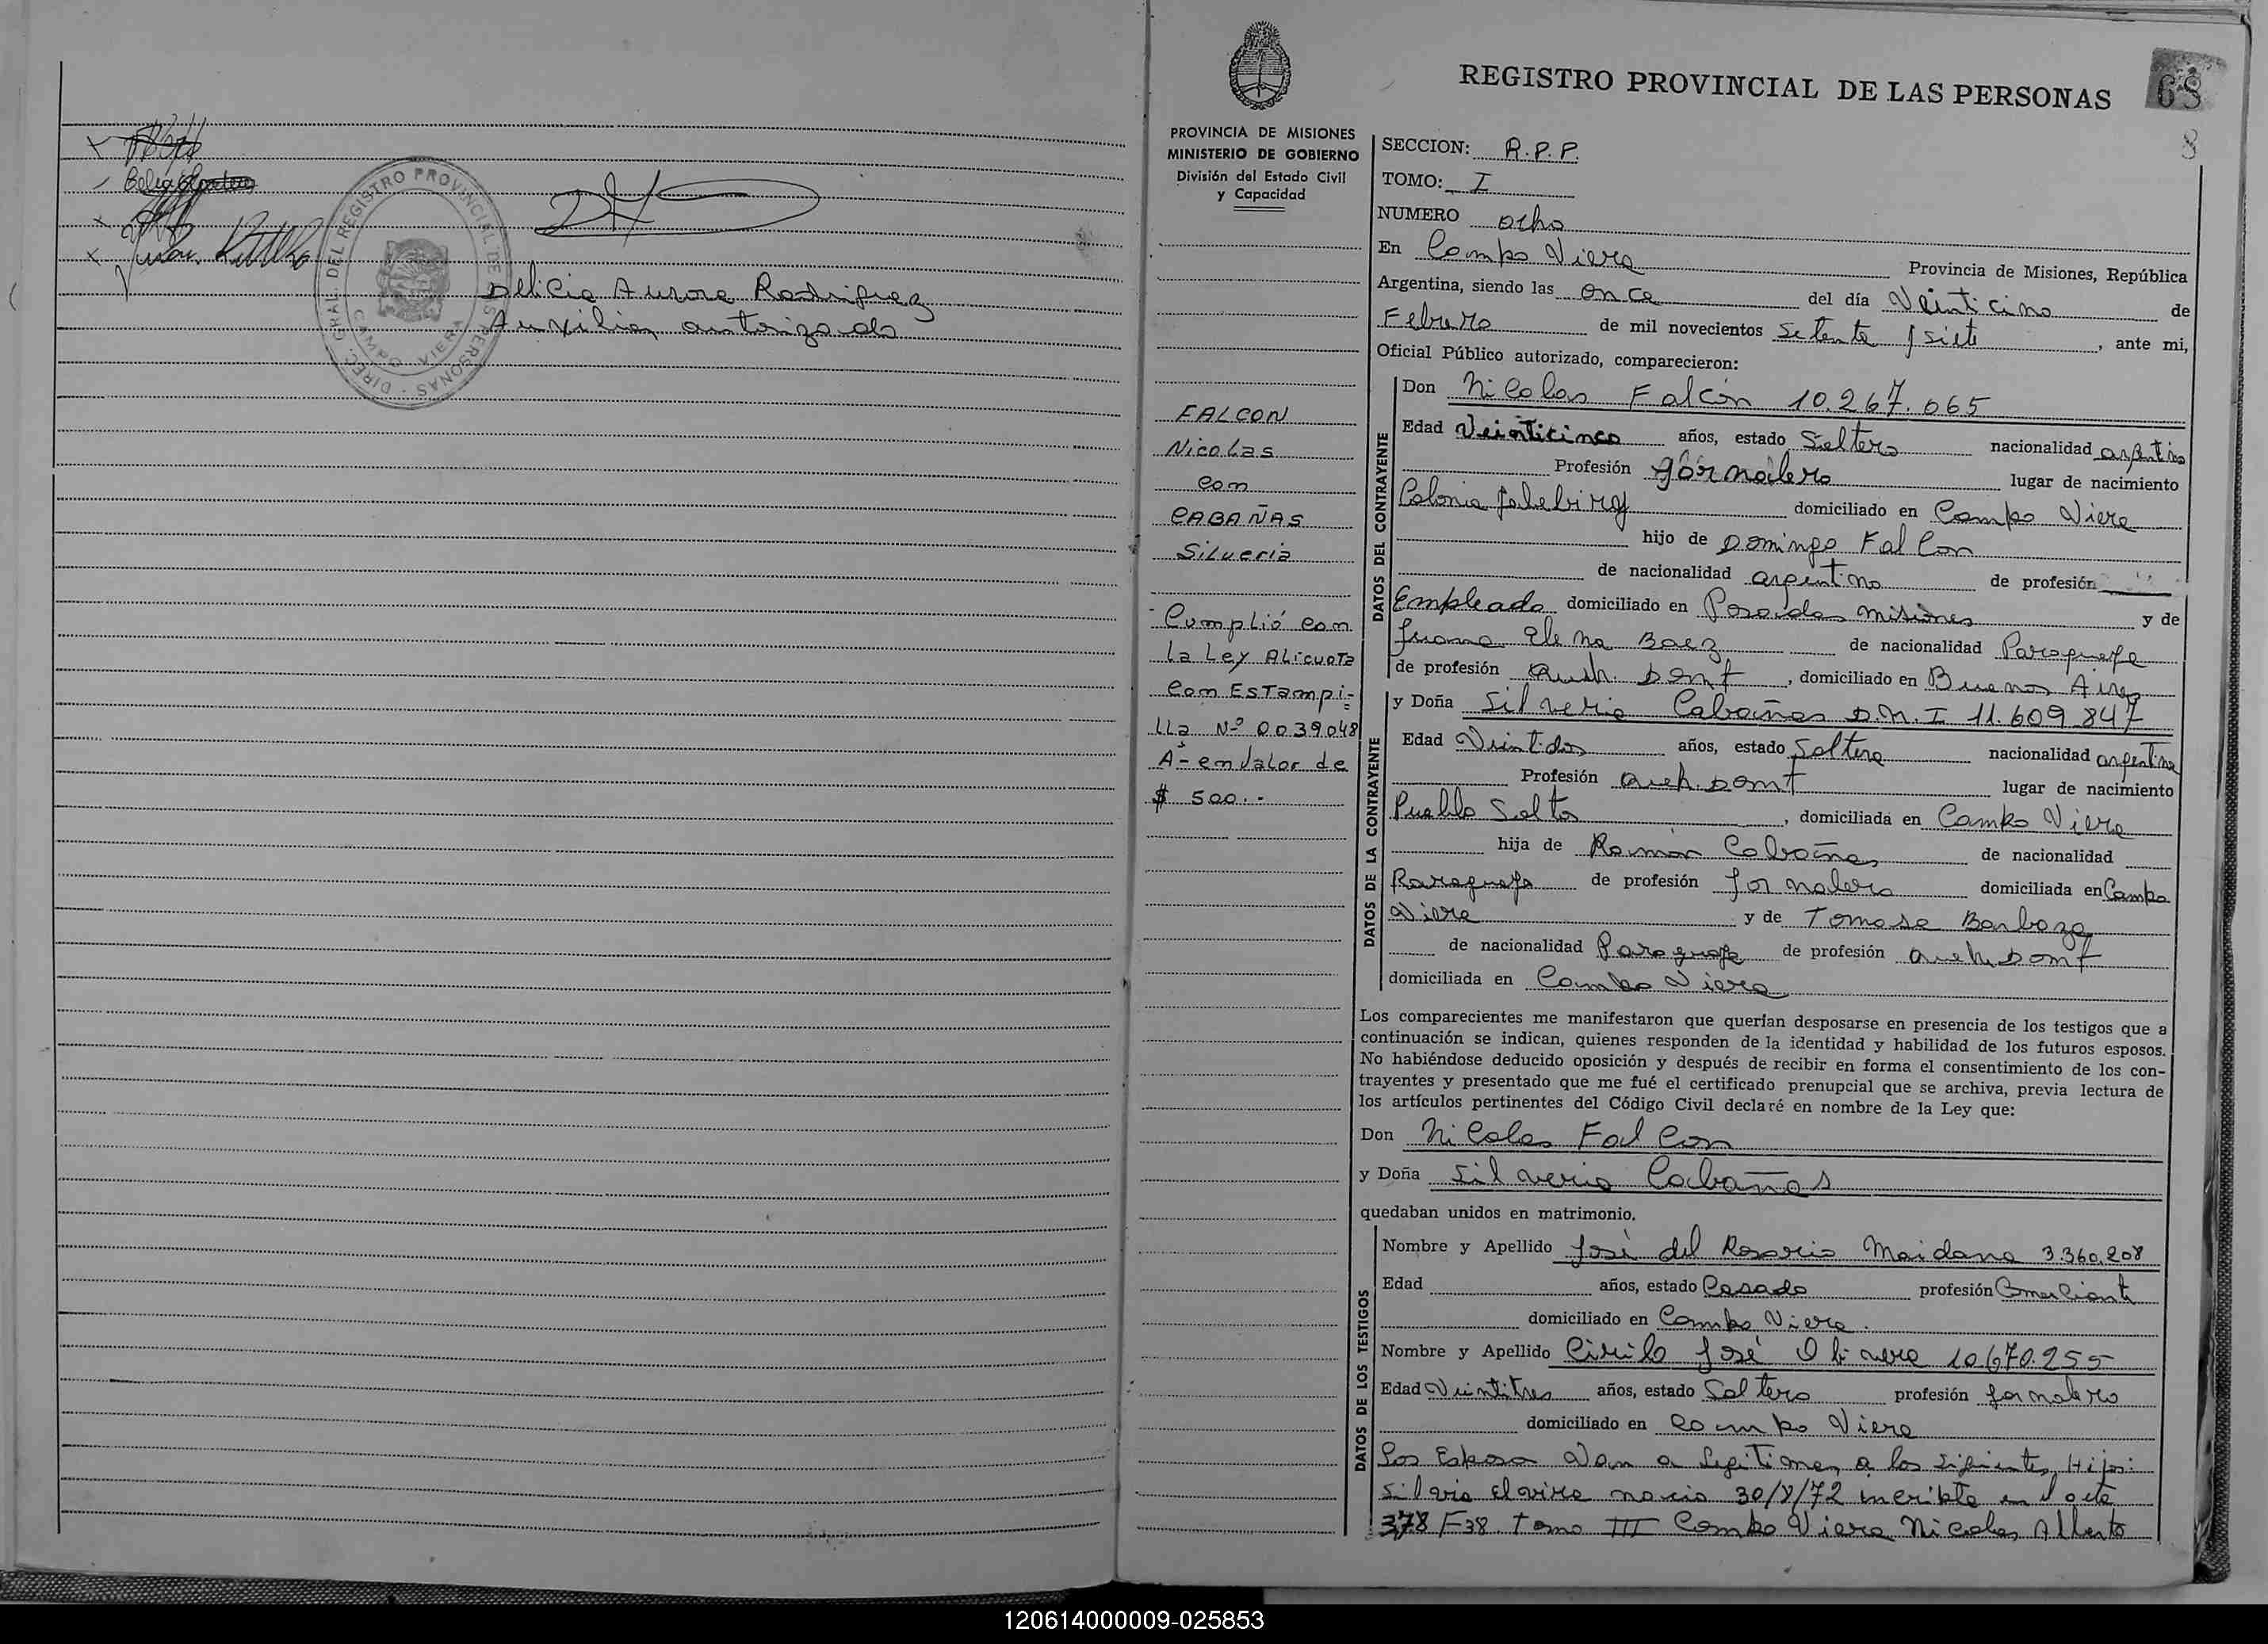 DIREC. GRAL. DEL REGISTRO PROVINCIAL DE LAS PERSONAS
CAMPO VIERA
Delicia Aurora Rodriguez
Auxiliar autorizada
PROVINCIA DE MISIONES
MINISTERIO DE GOBIERNO
División del Estado Civil
y Capacidad
FALCON
Nicolas
con
CABAÑAS
Silveria
Cumplió con
la Ley Alicuota
con Estampi-
lla Nº 0039048
A- en valor de
$ 500.-
REGISTRO PROVINCIAL DE LAS PERSONAS
68
8
SECCION: R.P.P.
TOMO: I
NUMERO ocho
En Campo Viera Provincia de Misiones, República
Argentina, siendo las once del día Veinticinco de
Febrero de mil novecientos setenta y siete, ante mi,
Oficial Público autorizado, comparecieron:
DATOS DEL CONTRAYENTE
Don Nicolas Falcón 10.267.065
Edad Veinticinco años, estado Soltero nacionalidad argentino
Profesión Jornalero lugar de nacimiento
Colonia Yabebiry domiciliado en Campo Viera
hijo de Domingo Falcon
de nacionalidad argentino de profesión
Empleado domiciliado en Posadas Misiones y de
Juana Elena Baez de nacionalidad Paraguaya
de profesión Queh. Domt, domiciliado en Buenos Aires
DATOS DE LA CONTRAYENTE
y Doña Silveria Cabañas D.N.I 11.609.847
Edad Veintidos años, estado Soltera nacionalidad argentina
Profesión Queh. Domt lugar de nacimiento
Pueblo Salto, domiciliada en Campo Viera
hija de Ramón Cabañas de nacionalidad
Paraguaya de profesión Jornalero domiciliada en Campo
Viera y de Tomasa Barboza
de nacionalidad Paraguaya de profesión Queh. Domt
domiciliada en Campo Viera
Los comparecientes me manifestaron que querían desposarse en presencia de los testigos que a
continuación se indican, quienes responden de la identidad y habilidad de los futuros esposos.
No habiéndose deducido oposición y después de recibir en forma el consentimiento de los con-
trayentes y presentado que me fué el certificado prenupcial que se archiva, previa lectura de
los artículos pertinentes del Código Civil declaré en nombre de la Ley que:
Don Nicolas Falcon
y Doña Silveria Cabañas
quedaban unidos en matrimonio.
DATOS DE LOS TESTIGOS
Nombre y Apellido José del Rosario Maidana 3.360.208
Edad años, estado Casado profesión Comerciante
domiciliado en Campo Viera.
Nombre y Apellido Cirilo José Olivera 10.670.255
Edad Veintitres años, estado Soltero profesión Jornalero
domiciliado en Campo Viera
Los Esposos Van a Legitimar a los siguientes Hijos:
Silvia Elvira nacio 30/8/72 incripta en el acta
378 F38. Tomo III Campo Viera Nicolas Alberto
120614000009-025853